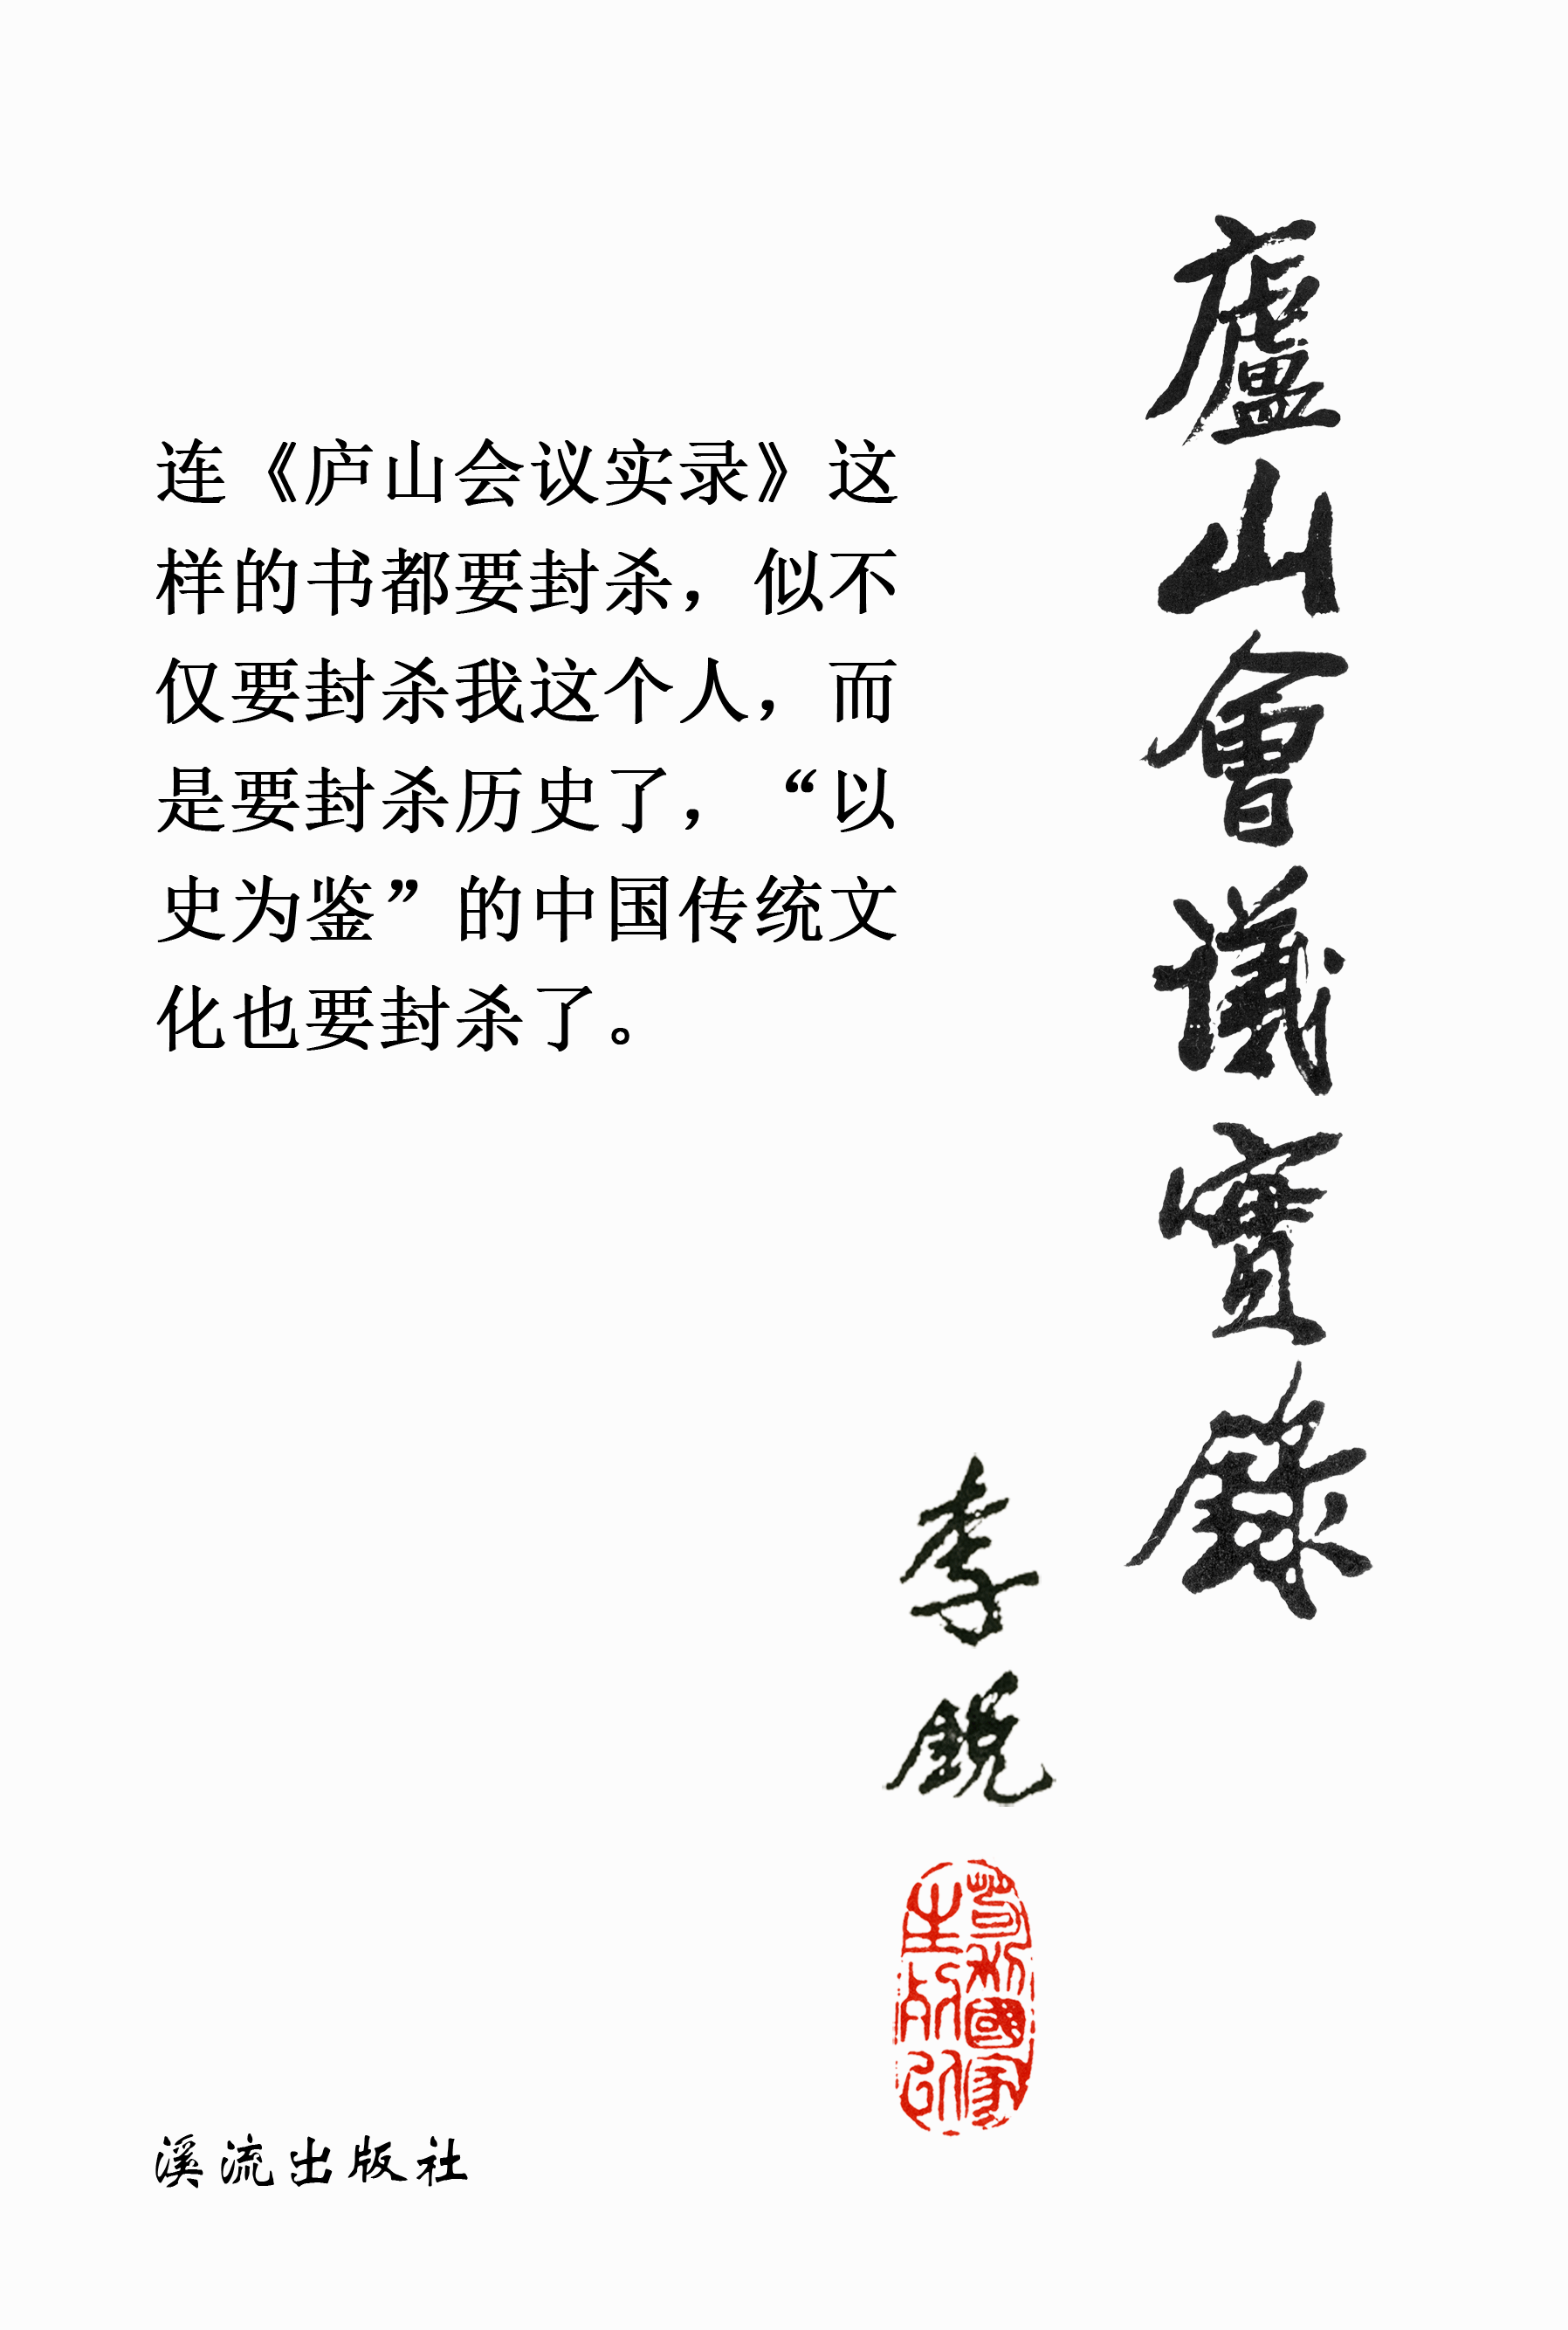 廬山會議實錄
连《庐山会议实录》这
样的书都要封杀，似不
仅要封杀我这个人，而
是要封杀历史了，“以
史为鉴”的中国传统文
化也要封杀了。
李銳
苟利國家
生死以
溪流出版社